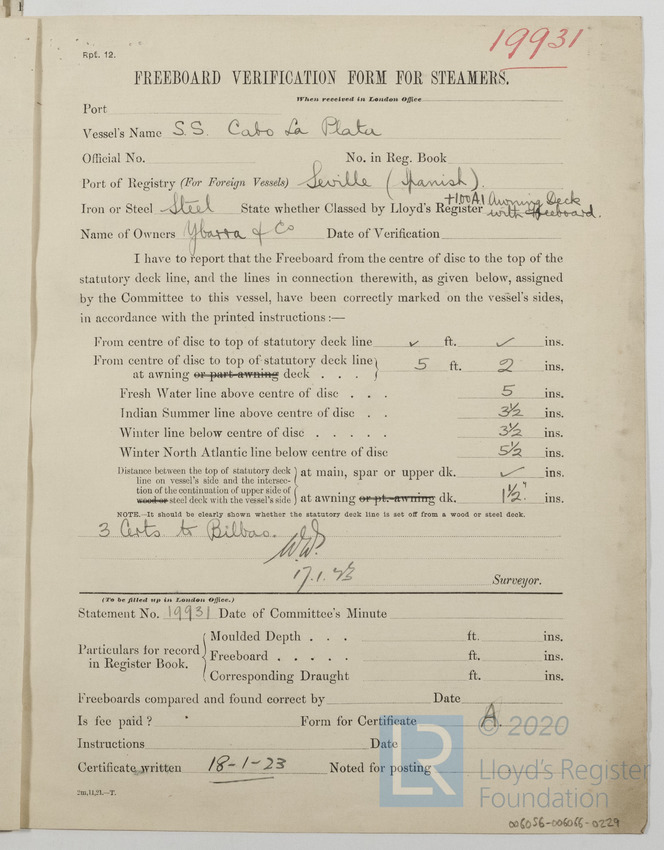 19931
Rpt. 12.
FREEBOARD VERIFICATION FORM FOR STEAMERS.
When received in London Office
Port
Vessel's Name S.S. Cabo La Plata
Official No. No. in Reg. Book
Port of Registry (For Foreign Vessels) Seville (Spanish).
Iron or Steel Steel State whether Classed by Lloyd's Register +100A1 Awning Deck with freeboard.
Name of Owners Ybarra & Co Date of Verification
I have to report that the Freeboard from the centre of disc to the top of the
statutory deck line, and the lines in connection therewith, as given below, assigned
by the Committee to this vessel, have been correctly marked on the vessel's sides,
in accordance with the printed instructions :—
From centre of disc to top of statutory deck line ✓ ft. ✓ ins.
From centre of disc to top of statutory deck line
at awning or part-awning deck . . . 5 ft. 2 ins.
Fresh Water line above centre of disc . . . 5 ins.
Indian Summer line above centre of disc . . 3½ ins.
Winter line below centre of disc . . . . . 3½ ins.
Winter North Atlantic line below centre of disc 5½ ins.
Distance between the top of statutory deck
line on vessel's side and the intersec-
tion of the continuation of upper side of
wood or steel deck with the vessel's side
at main, spar or upper dk. ✓ ins.
at awning or pt.-awning dk. 1½" ins.
NOTE.—It should be clearly shown whether the statutory deck line is set off from a wood or steel deck.
3 Certs to Bilbao.
17.1.23
Surveyor.
(To be filled up in London Office.)
Statement No. 19931 Date of Committee's Minute
Particulars for record
in Register Book.
Moulded Depth . . . ft. ins.
Freeboard . . . . . ft. ins.
Corresponding Draught ft. ins.
Freeboards compared and found correct by Date
Is fee paid ? Form for Certificate A.
Instructions Date
Certificate written 18-1-23 Noted for posting
2m,11,21.—T.
LR
© 2020
Lloyd's Register
Foundation
006056-006066-0229